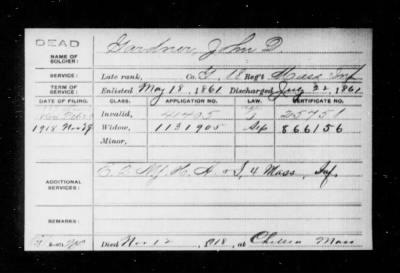 DEAD
NAME OF SOLDIER: Gardner, John D.
SERVICE: Late rank, Co. G, Reg't Mass Inf
TERM OF SERVICE: Enlisted May 18, 1861 Discharged July 22, 1861
DATE OF FILING. CLASS. APPLICATION NO. LAW. CERTIFICATE NO.
Invalid, 41435 25751
1918 Nov 29 Widow, 1131905 866156
Minor,
ADDITIONAL SERVICES: H, 4 Mass, Inf.
REMARKS:
Died Nov 12, 1918, at Chelsea Mass